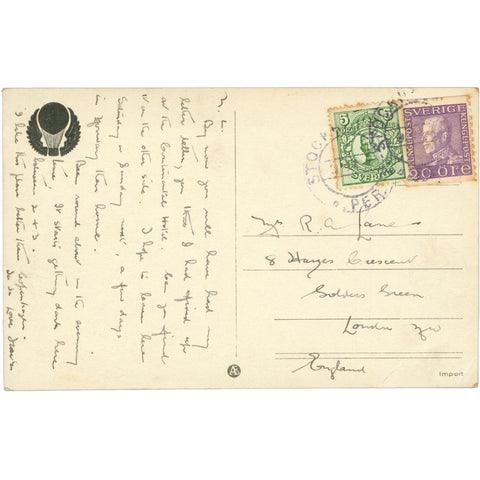 By now you will have had my
letter telling you that I had fixed up
at the Continental Hotel. Can you find
it on the other side. I hope to leave here
Saturday or Sunday next, a few days
in Germany then home.
Been round about in the evening
time. It starts getting dark here
between 2 & 3.
I like this place better than Copenhagen.
Love
STOCK
PER.
5
SVERIGE
SVERIGE
KUNGL. POST
20 ÖRE
Mrs R. A. Lane
8 Hayes Crescent
Golders Green
London NW
England
Import